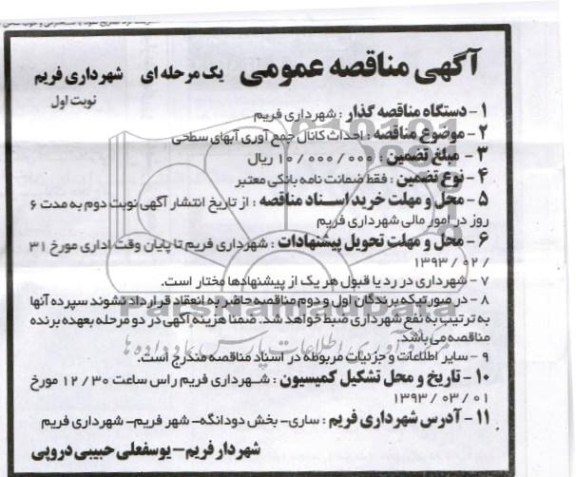 آگهی مناقصه عمومی یک مرحله ای شهرداری فریم
نوبت اول
۱- دستگاه مناقصه گذار : شهرداری فریم
۲- موضوع مناقصه : احداث کانال جمع آوری آبهای سطحی
۳- مبلغ تضمین : ۱۰/۰۰۰/۰۰۰ ریال
۴- نوع تضمین : فقط ضمانت نامه بانکی معتبر
۵- محل و مهلت خرید اسناد مناقصه : از تاریخ انتشار آگهی نوبت دوم به مدت ۶
روز در امور مالی شهرداری فریم
۶- محل و مهلت تحویل پیشنهادات : شهرداری فریم تا پایان وقت اداری مورخ ۳۱
/ ۰۲ / ۱۳۹۳
۷- شهرداری در رد یا قبول هر یک از پیشنهادها مختار است.
۸- در صورتیکه برندگان اول و دوم مناقصه حاضر به انعقاد قرارداد نشوند سپرده آنها
به ترتیب به نفع شهرداری ضبط خواهد شد. ضمنا هزینه آگهی در دو مرحله بعهده برنده
مناقصه می باشد.
۹- سایر اطلاعات و جزئیات مربوطه در اسناد مناقصه مندرج است.
۱۰- تاریخ و محل تشکیل کمیسیون : شهرداری فریم راس ساعت ۱۲/۳۰ مورخ
۱۳۹۳ / ۰۳ / ۰۱
۱۱- آدرس شهرداری فریم : ساری- بخش دودانگه- شهر فریم- شهرداری فریم
شهردار فریم- یوسفعلی حبیبی دروپی
ParsNamadData